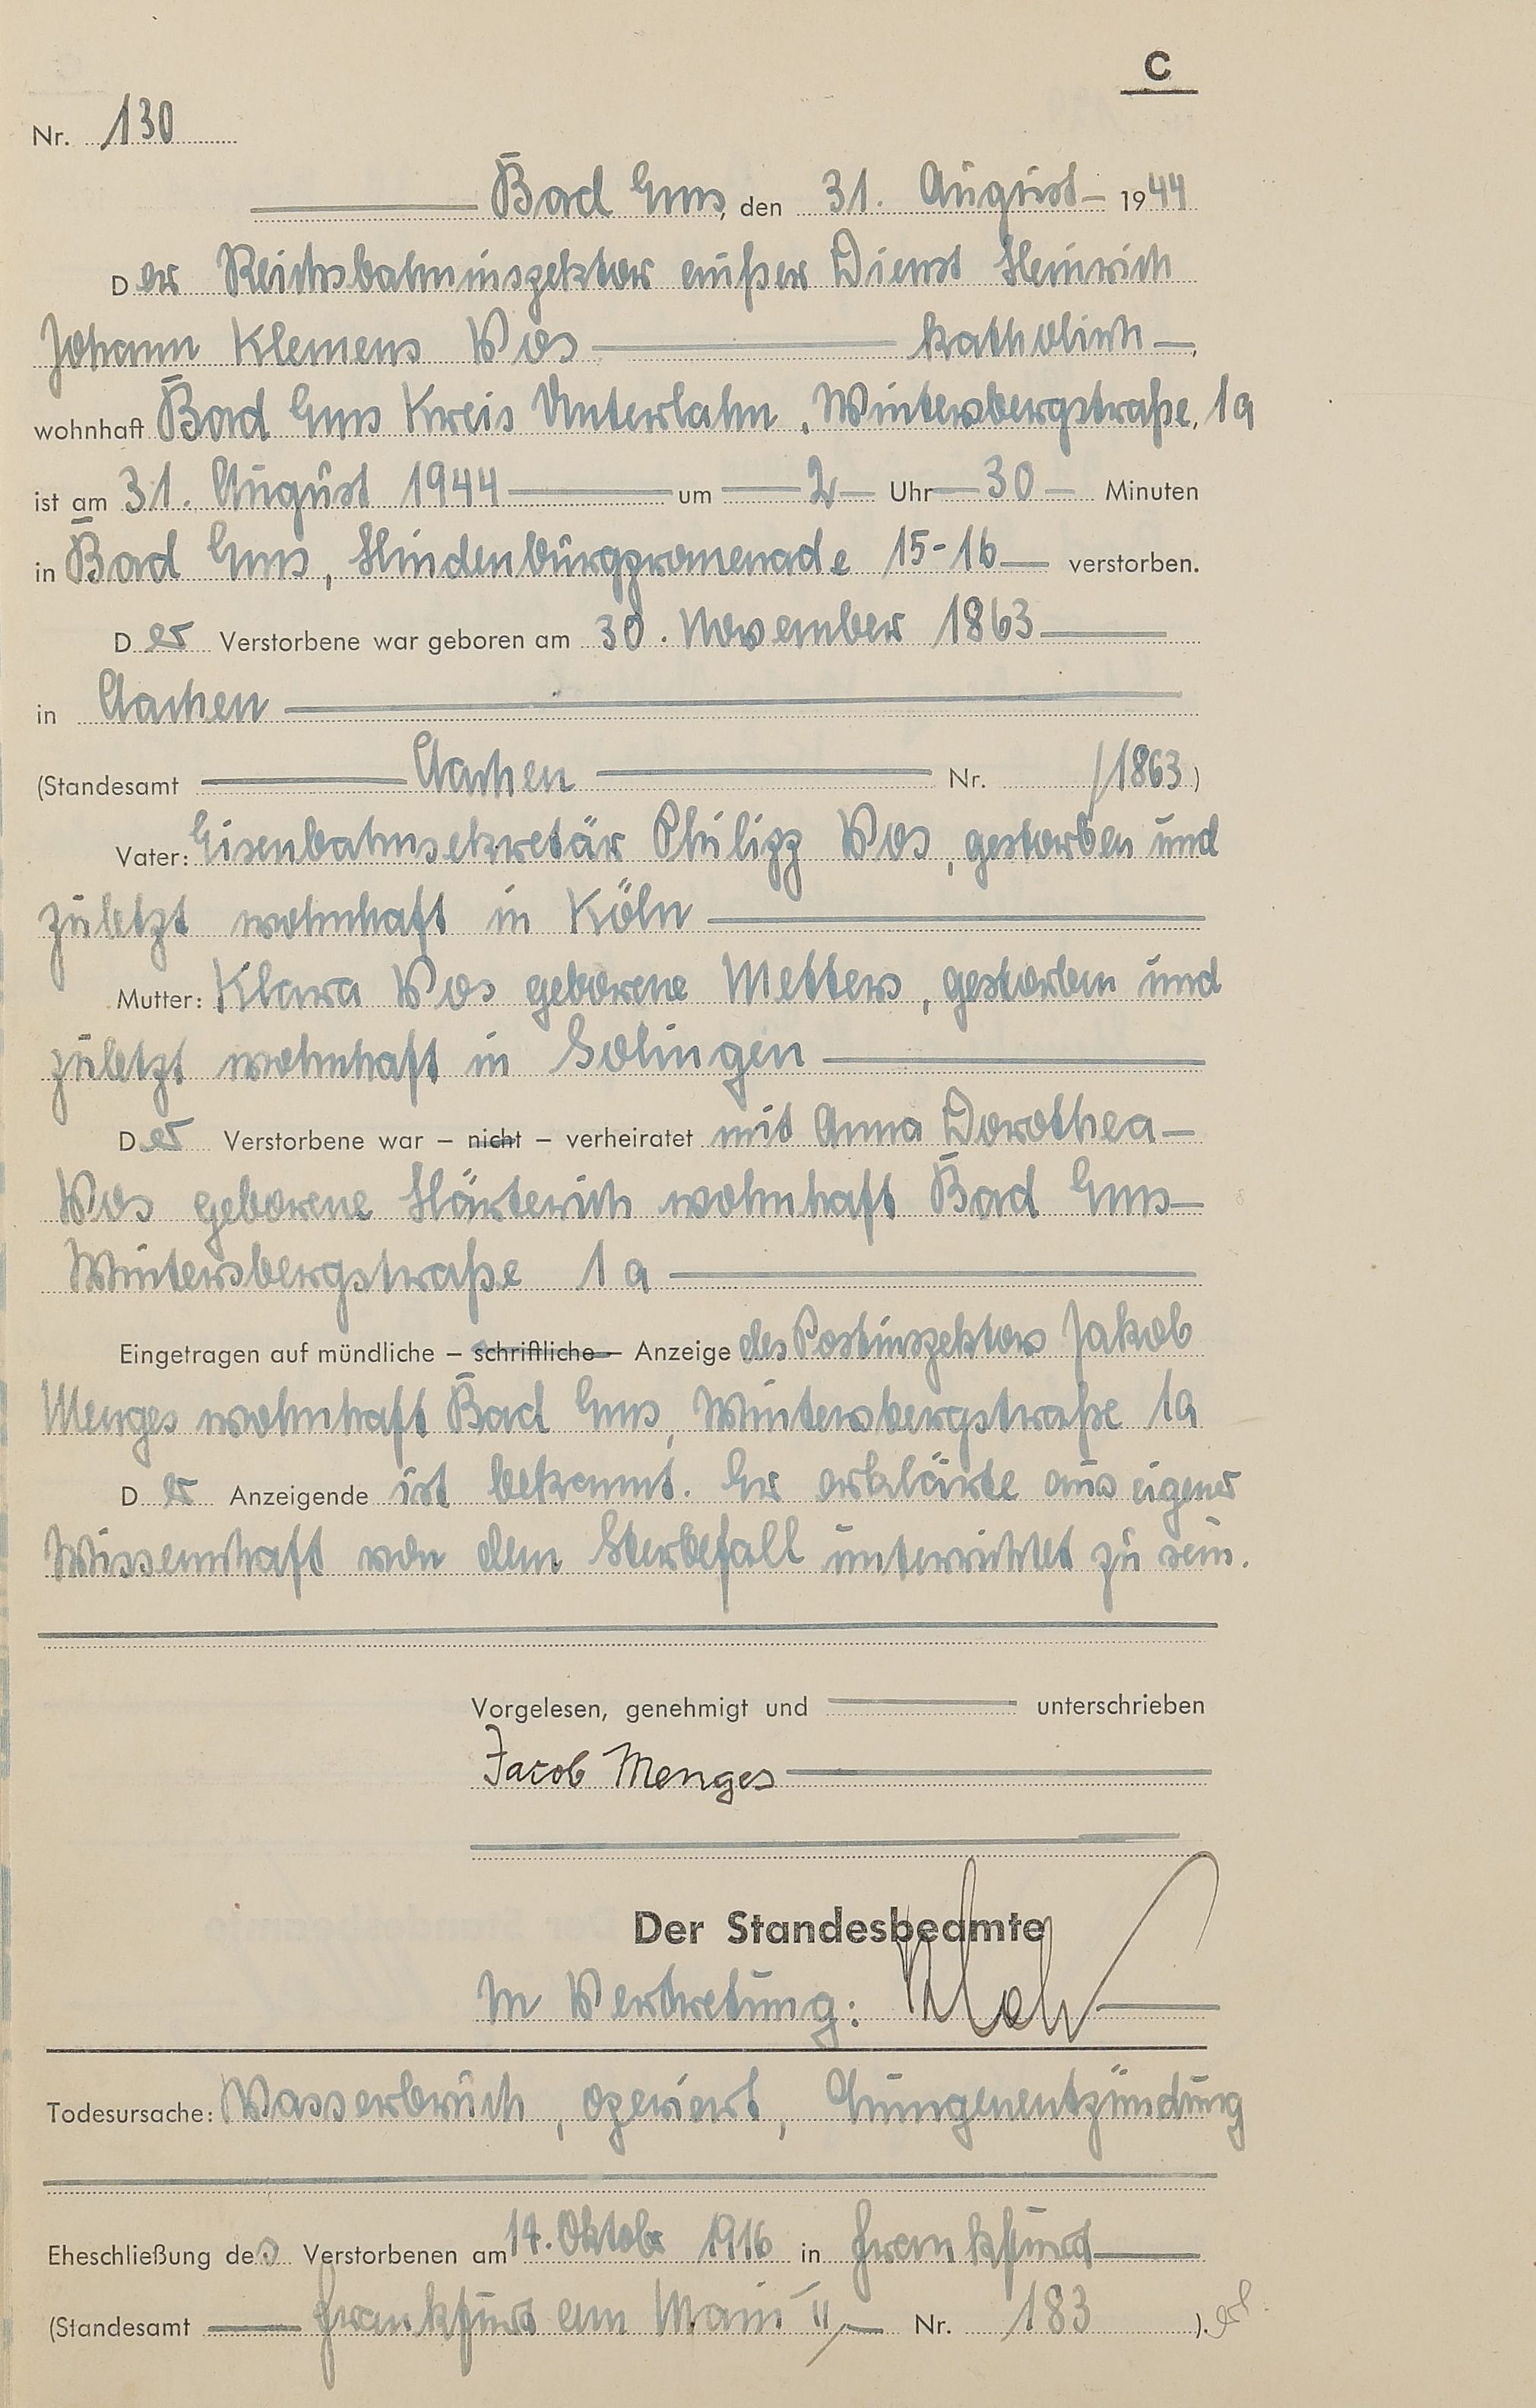 C
Nr. 130
Bad Ems, den 31. August 1944
Der Reichsbahninspektor außer Dienst Heinrich
Johann Klemens Vos katholisch
wohnhaft Bad Ems Kreis Unterlahn, Wintersbergstraße, 1a
ist am 31. August 1944 um 2 Uhr 30 Minuten
in Bad Ems, Hindenburgpromenade 15-16 verstorben.
Der Verstorbene war geboren am 30. November 1863
in Aachen
(Standesamt Aachen Nr. /1863)
Vater: Eisenbahnsekretär Philipp Vos, gestorben und
zuletzt wohnhaft in Köln
Mutter: Klara Vos geborene Metters, gestorben und
zuletzt wohnhaft in Solingen
Der Verstorbene war – nicht – verheiratet mit Anna Dorothea
Vos geborene Härterich wohnhaft Bad Ems
Wintersbergstraße 1a
Eingetragen auf mündliche – schriftliche – Anzeige des Postinspektors Jakob
Menges wohnhaft Bad Ems, Wintersbergstraße 1a
Der Anzeigende ist bekannt. Er erklärte aus eigener
Wissenschaft von dem Sterbefall unterrichtet zu sein.
Vorgelesen, genehmigt und unterschrieben
Jacob Menges
Der Standesbeamte
In Vertretung:
Todesursache: Wasserbruch, operiert, Lungenentzündung
Eheschließung des Verstorbenen am 14. Oktober 1916 in Frankfurt
(Standesamt Frankfurt am Main II Nr. 183 ).